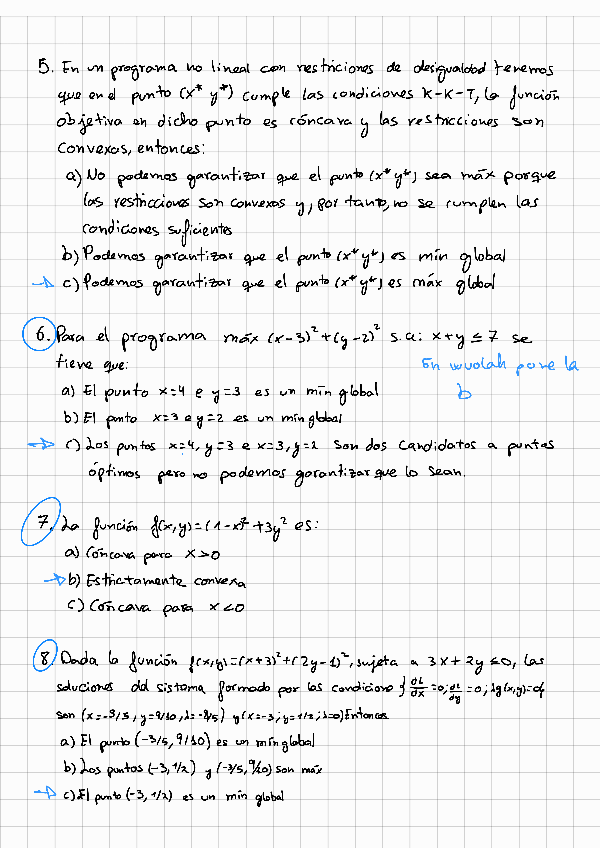 5. En un programa no lineal con restriciones de desigualdad tenemos
que en el punto (x* y*) cumple las condiciones K-K-T, la función
objetiva en dicho punto es cóncava y las restricciones son
convexas, entonces:
a) No podemos garantizar que el punto (x* y*) sea máx porque
las restricciones son convexas y, por tanto, no se cumplen las
condiciones suficientes
b) Podemos garantizar que el punto (x* y*) es mín global
→ c) Podemos garantizar que el punto (x* y*) es máx global
6. Para el programa máx (x-3)² + (y-2)² s.a: x+y ≤ 7 se
tiene que:
En wuolah pone la
b
a) El punto x=4 e y=3 es un mín global
b) El punto x=3 e y=2 es un mín global
→ c) Los puntos x=4, y=3 e x=3, y=2 son dos candidatos a puntos
óptimos pero no podemos garantizar que lo sean.
7. La función f(x,y)=(1-x)²+3y² es:
a) Cóncava para x>0
→ b) Estrictamente convexa
c) Cóncava para x<0
8. Dada la función f(x,y)=(x+3)²+(2y-1)², sujeta a 3x+2y ≤0, las
soluciones del sistema formado por las condicione {∂L/∂x=0; ∂L/∂y=0; λg(x,y)=0},
son (x=-3/5, y=9/10, λ=-8/5) y (x=-3; y=1/2; λ=0) Entonces
a) El punto (-3/5, 9/10) es un mín global
b) Los puntos (-3, 1/2) y (-3/5, 9/10) son máx
→ c) El punto (-3, 1/2) es un mín global